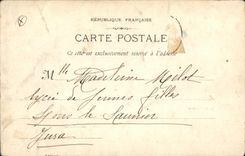 RÉPUBLIQUE FRANÇAISE
CARTE POSTALE
Ce côté est exclusivement réservé à l'adresse
Mlle Madeleine Milot
Lycée de Jeunes filles
Lons le Saunier
Jura